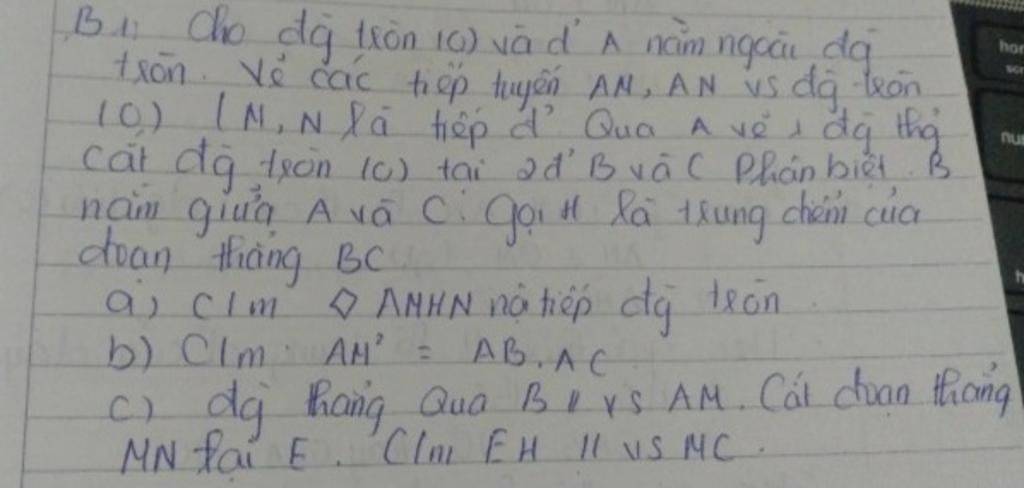 B1: Cho đg tròn (O) và đ' A nằm ngoài đg
tròn. Vẽ các tiếp tuyến AM, AN vs đg tròn
(O) (M, N là tiếp đ' Qua A vẽ 1 đg thg
cắt đg tròn (O) tại 2đ' B và C Phân biệt. B
nằm giữa A và C. Gọi H là trung điểm của
đoan thẳng BC
a) C/m ◇ AMHN nộ tiếp đg tròn
b) C/m. AM² = AB.AC
c) đg thẳng Qua B // vs AM. Cắt đoan thẳng
MN tại E. C/m EH // vs MC.
hom
num
h